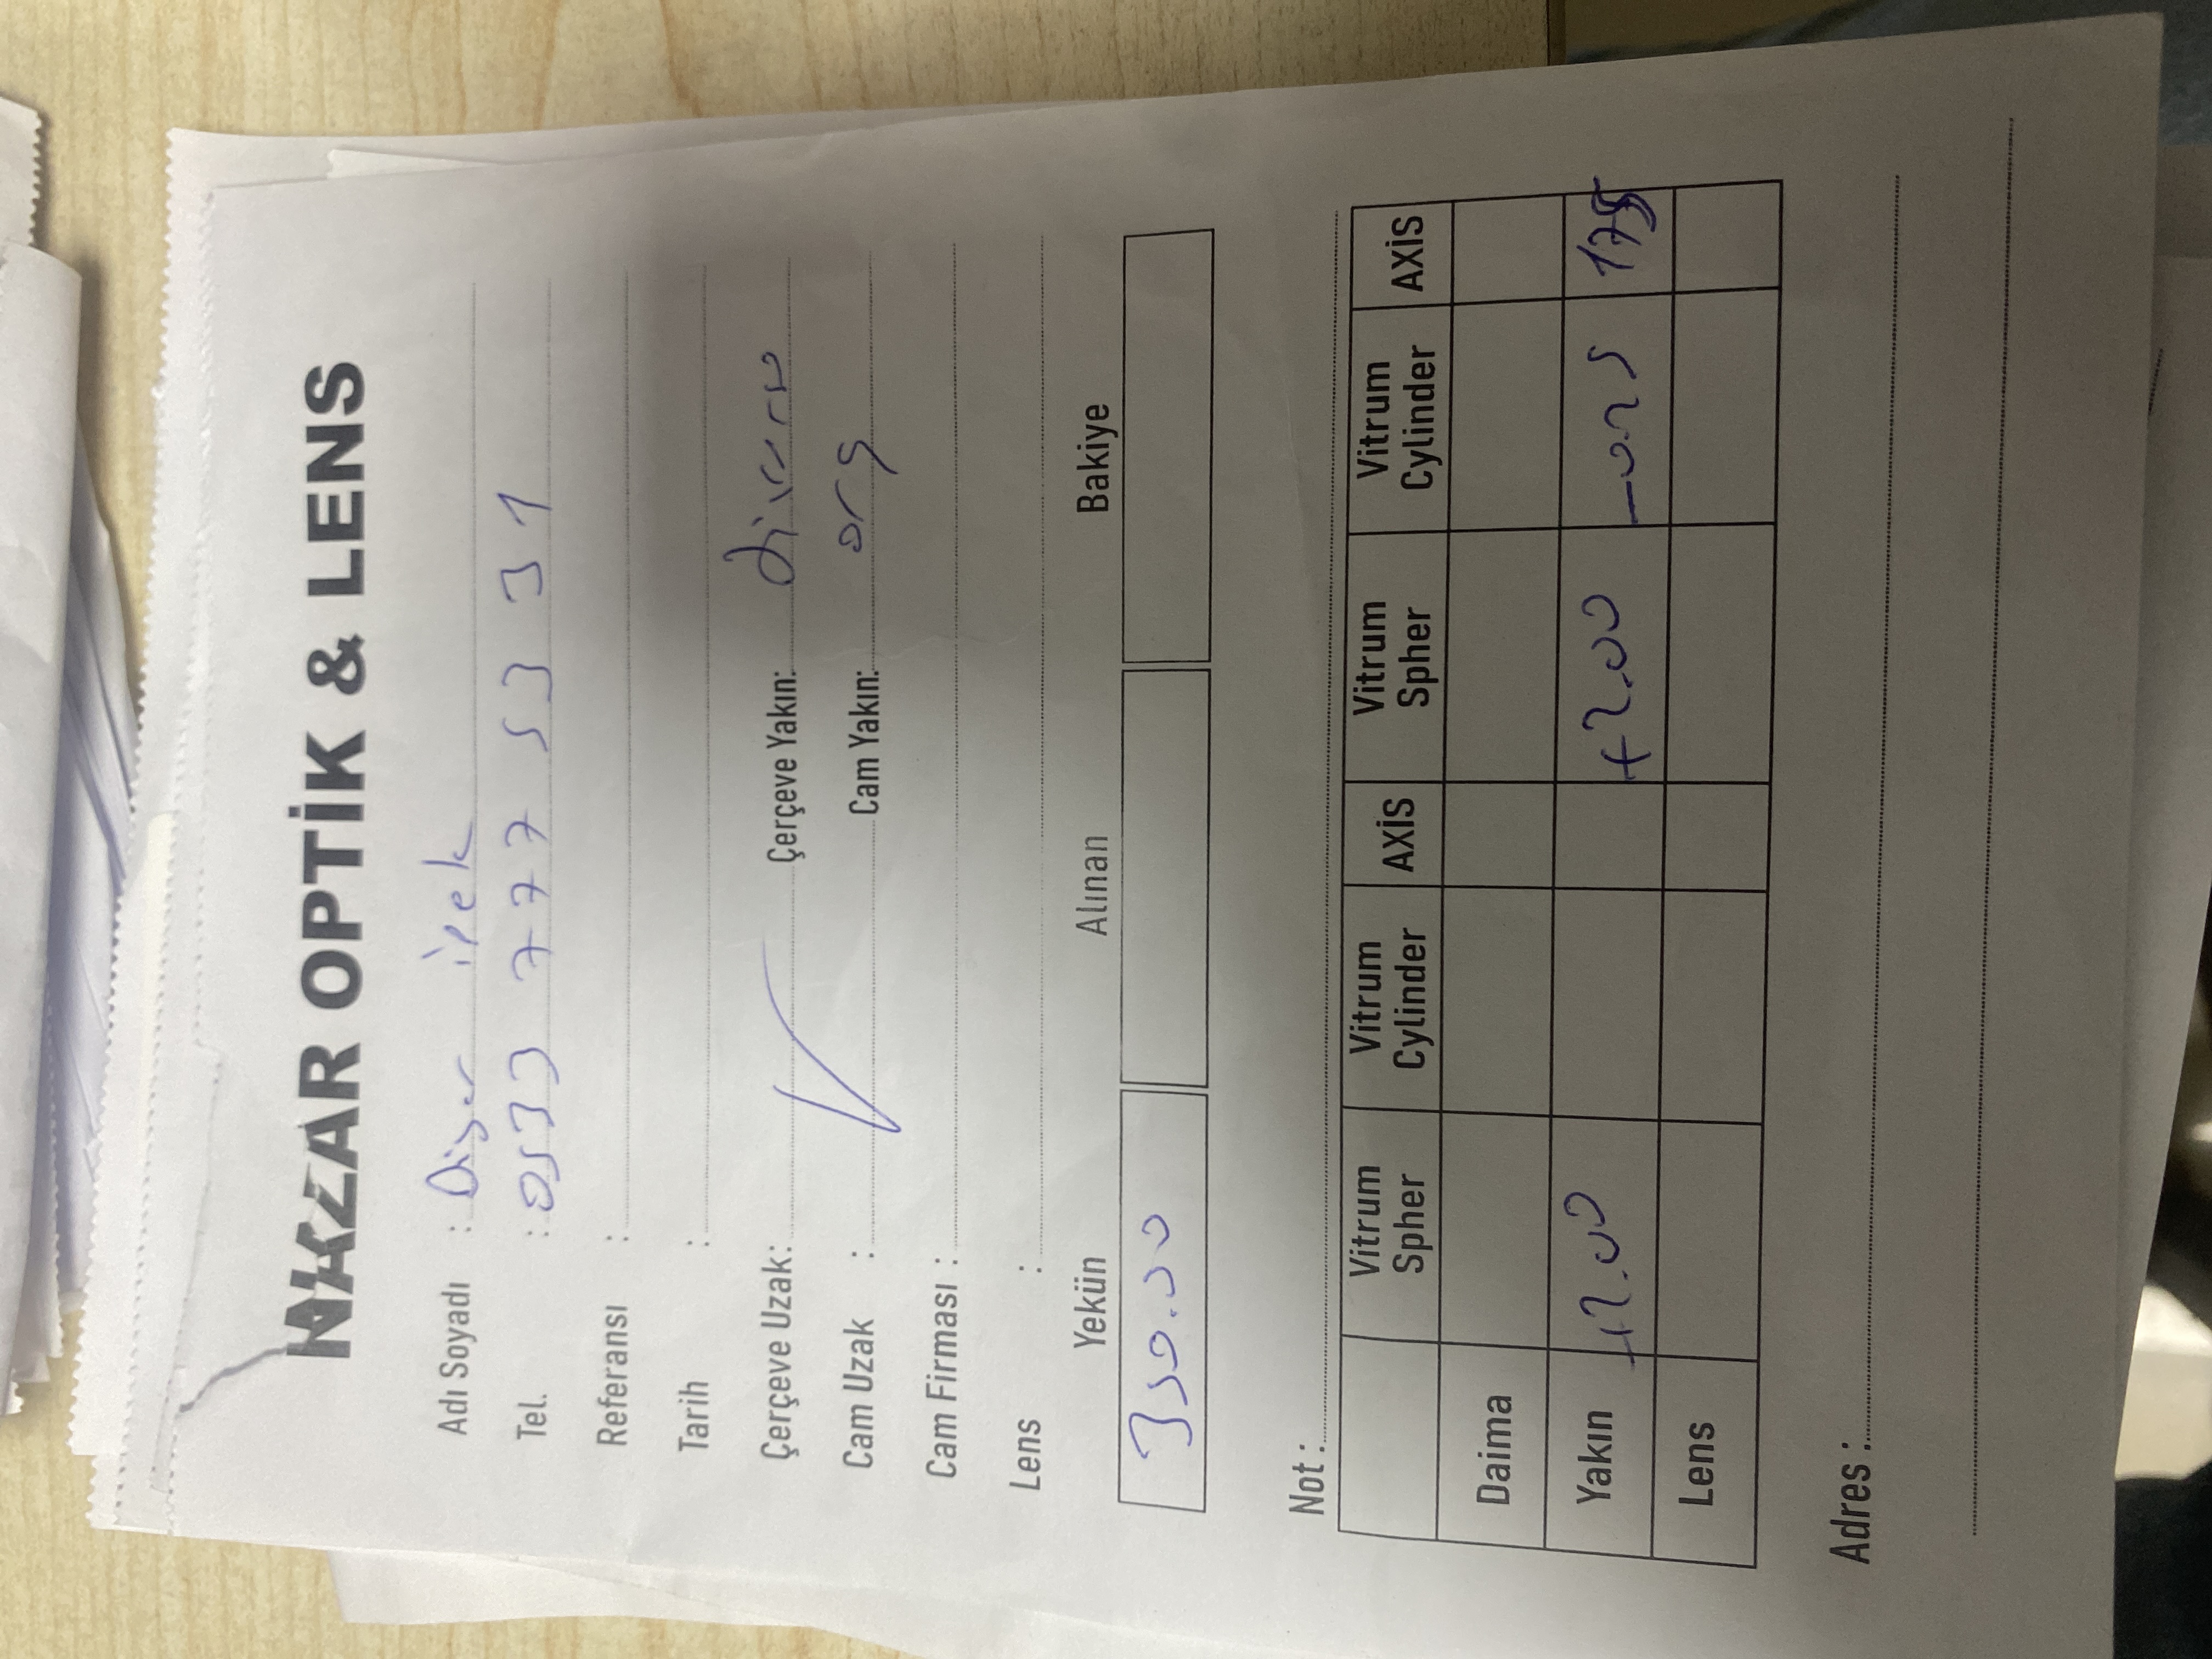 NAZAR OPTİK & LENS
Adı Soyadı : ipek
Tel. : 0533 777 53 31
Referansı :
Tarih :
Çerçeve Uzak: Çerçeve Yakın:
Cam Uzak : Cam Yakın: org
Cam Firması :
Lens :
Yekün Alınan Bakiye
350.00
Not :
Vitrum Spher Vitrum Cylinder AXİS Vitrum Spher Vitrum Cylinder AXİS
Daima
Yakın +2.00 +2.00 -0.25 175
Lens
Adres :